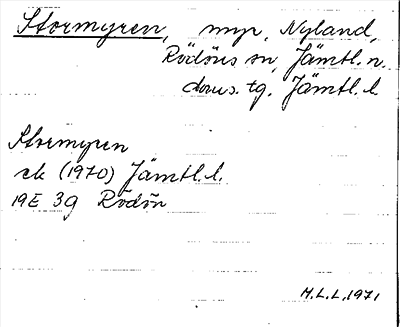 Stormyren, myr, Nyland,
Rödöns sn, Jämtl. n.
doms. tg. Jämtl. l
Stormyren
ek (1970) Jämtl. l.
19E 3g Rödön
M.L.L. 1971